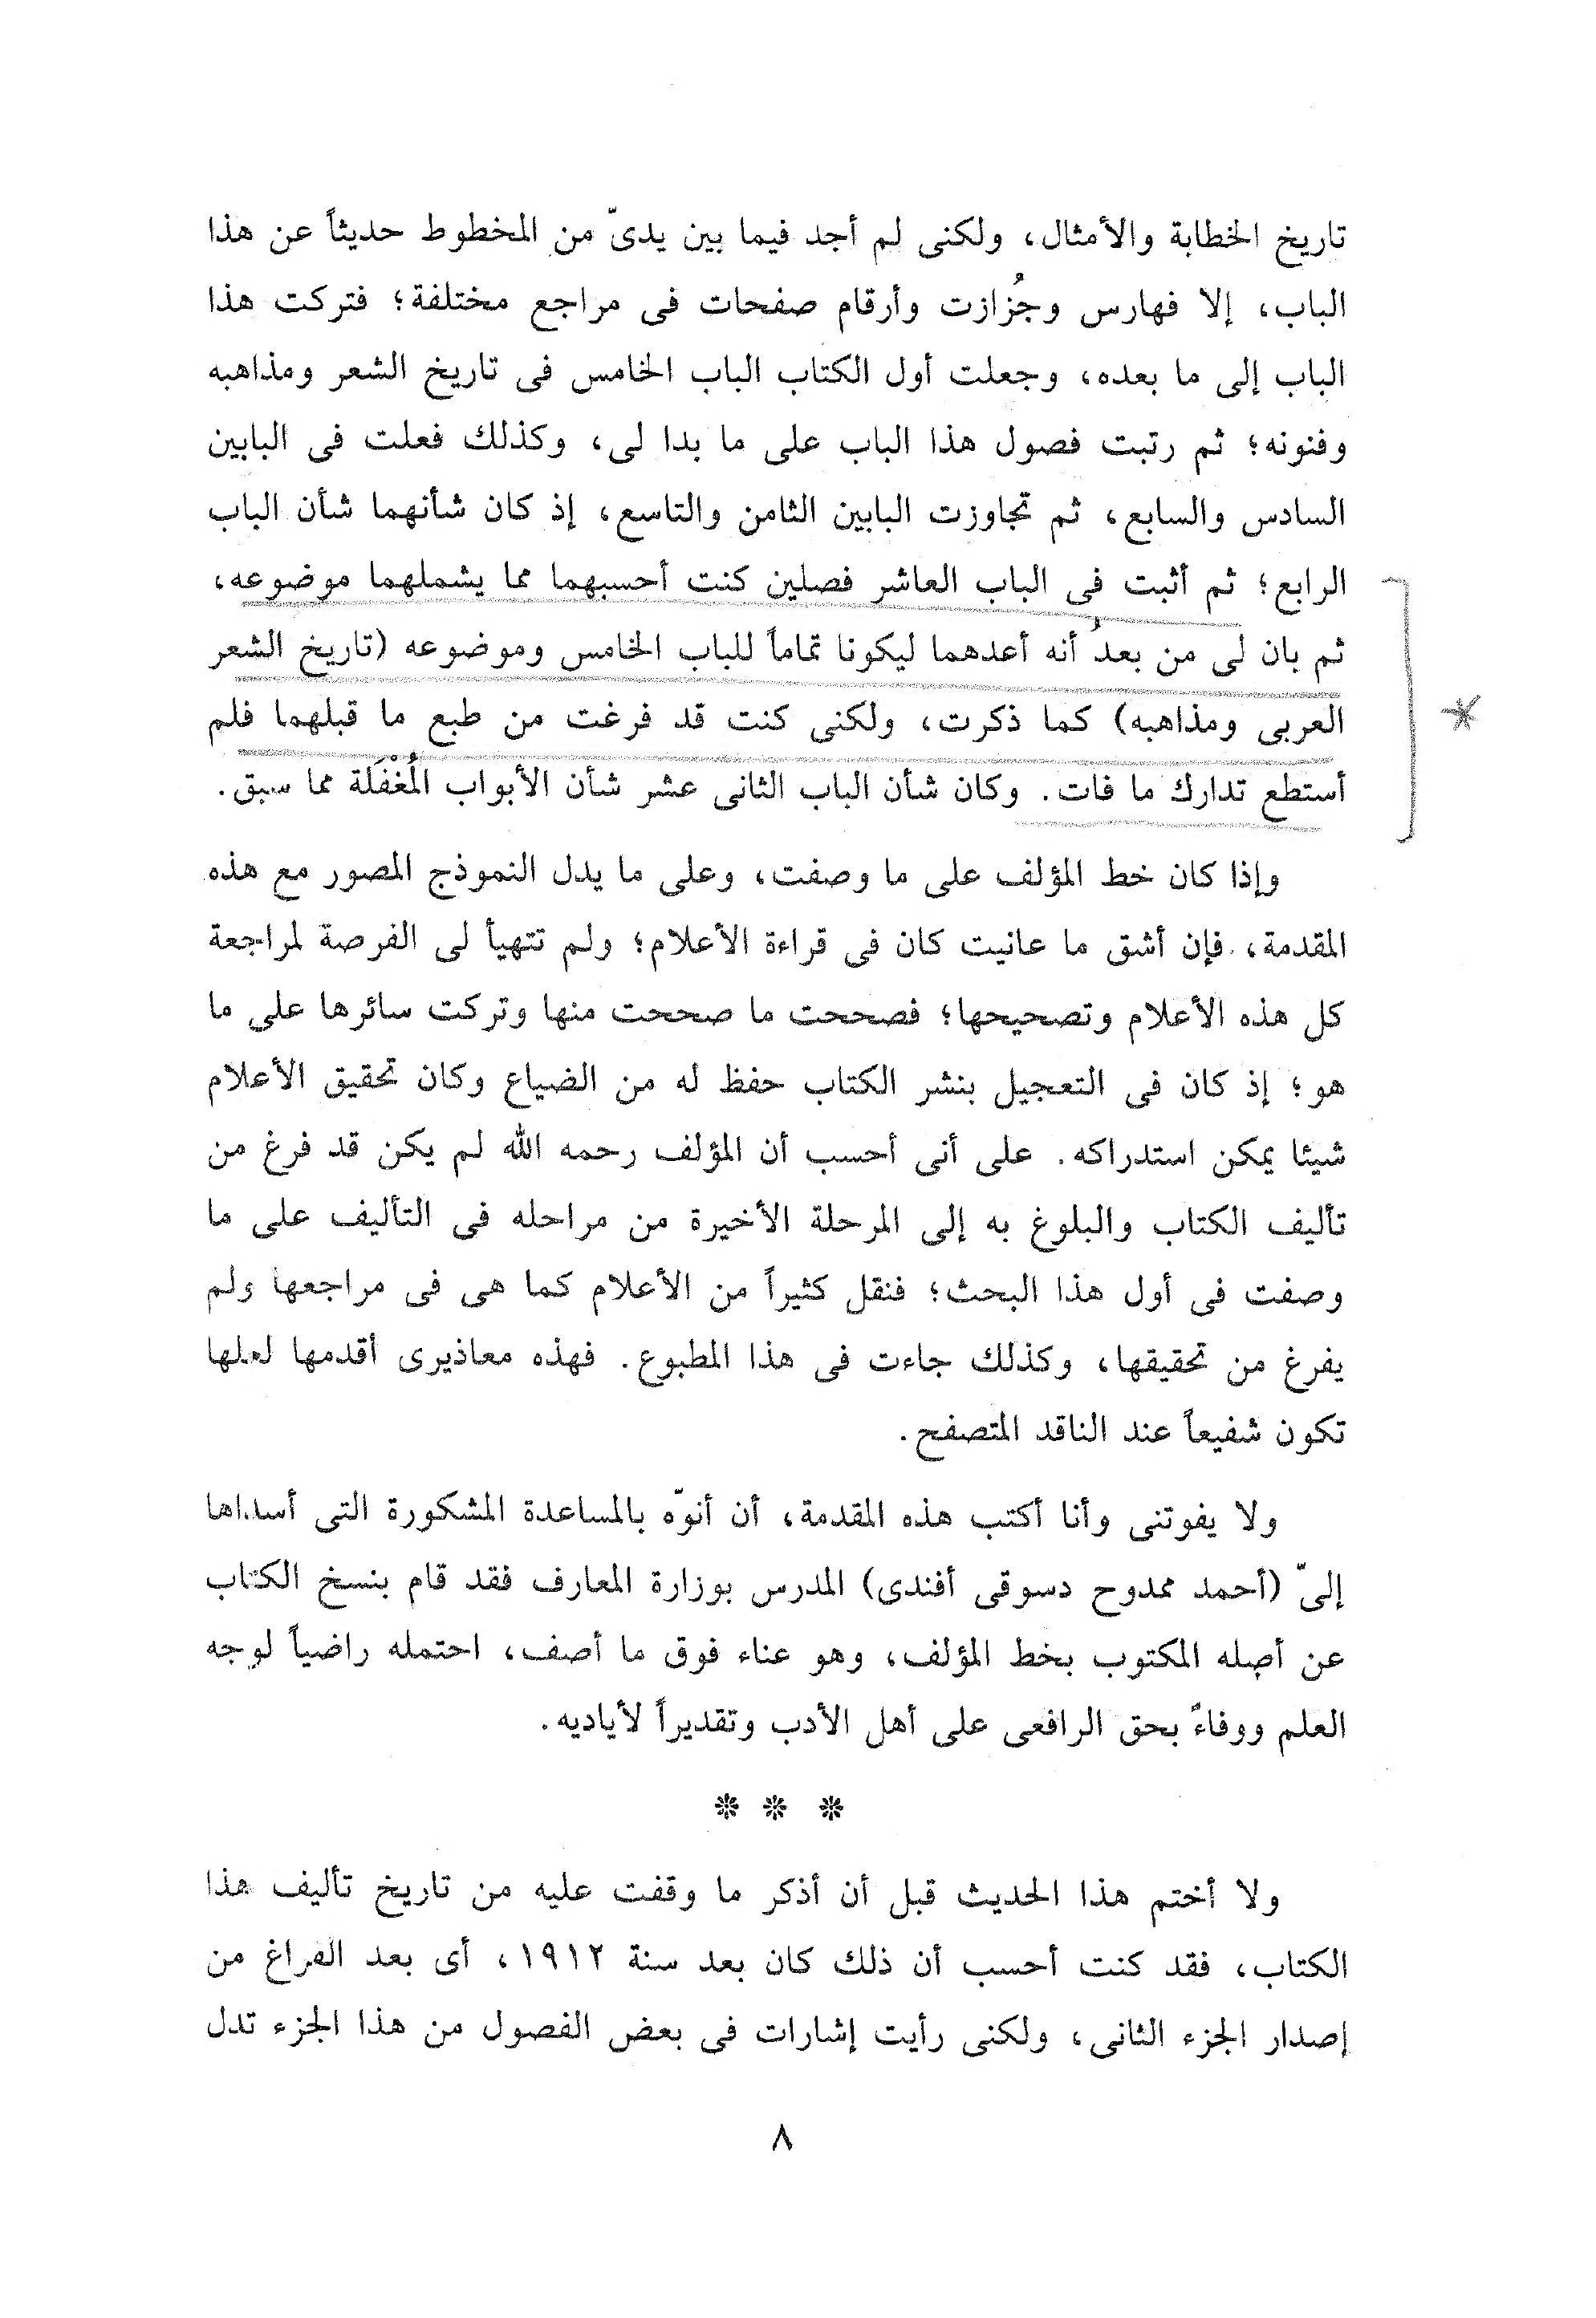 تاريخ الخطابة والأمثال، ولكنى لم أجد فيما بين يدىّ من المخطوط حديثاً عن هذا
الباب، إلا فهارس وجُزازت وأرقام صفحات فى مراجع مختلفة؛ فتركت هذا
الباب إلى ما بعده، وجعلت أول الكتاب الباب الخامس فى تاريخ الشعر ومذاهبه
وفنونه؛ ثم رتبت فصول هذا الباب على ما بدا لى، وكذلك فعلت فى البابين
السادس والسابع، ثم تجاوزت البابين الثامن والتاسع، إذ كان شأنهما شأن الباب
الرابع؛ ثم أثبت فى الباب العاشر فصلين كنت أحسبهما مما يشملهما موضوعه،
ثم بان لى من بعدُ أنه أعدهما ليكونا تماماً للباب الخامس وموضوعه (تاريخ الشعر
العربى ومذاهبه) كما ذكرت، ولكنى كنت قد فرغت من طبع ما قبلهما فلم
أستطع تدارك ما فات. وكان شأن الباب الثانى عشر شأن الأبواب المُغْفَلة مما سبق.
وإذا كان خط المؤلف على ما وصفت، وعلى ما يدل النموذج المصور مع هذه
المقدمة، فإن أشق ما عانيت كان فى قراءة الأعلام؛ ولم تتهيأ لى الفرصة لمراجعة
كل هذه الأعلام وتصحيحها؛ فصححت ما صححت منها وتركت سائرها على ما
هو؛ إذ كان فى التعجيل بنشر الكتاب حفظ له من الضياع وكان تحقيق الأعلام
شيئا يمكن استدراكه. على أنى أحسب أن المؤلف رحمه الله لم يكن قد فرغ من
تأليف الكتاب والبلوغ به إلى المرحلة الأخيرة من مراحله فى التأليف على ما
وصفت فى أول هذا البحث؛ فنقل كثيراً من الأعلام كما هى فى مراجعها ولم
يفرغ من تحقيقها، وكذلك جاءت فى هذا المطبوع. فهذه معاذيرى أقدمها لعلها
تكون شفيعاً عند الناقد المتصفح.
ولا يفوتنى وأنا أكتب هذه المقدمة، أن أنوّه بالمساعدة المشكورة التى أسداها
إلىّ (أحمد ممدوح دسوقى أفندى) المدرس بوزارة المعارف فقد قام بنسخ الكتاب
عن أصله المكتوب بخط المؤلف، وهو عناء فوق ما أصف، احتمله راضياً لوجه
العلم ووفاءً بحق الرافعى على أهل الأدب وتقديراً لأياديه.
* * *
ولا أختم هذا الحديث قبل أن أذكر ما وقفت عليه من تاريخ تأليف هذا
الكتاب، فقد كنت أحسب أن ذلك كان بعد سنة ١٩١٢، أى بعد الفراغ من
إصدار الجزء الثانى، ولكنى رأيت إشارات فى بعض الفصول من هذا الجزء تدل
٨